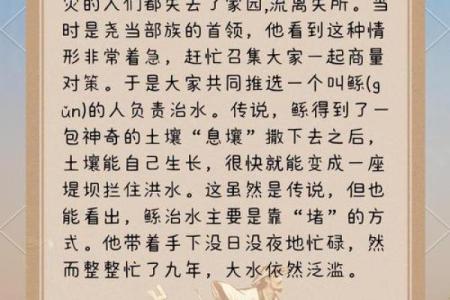 灾的人们都失去了家园,流离失所。当
时是尧当部族的首领，他看到这种情
形非常着急，赶忙召集大家一起商量
对策。于是大家共同推选一个叫鲧(g
ǔn)的人负责治水。传说，鲧得到了一
包神奇的土壤“息壤”撒下去之后，
土壤能自己生长，很快就能变成一座
堤坝拦住洪水。这虽然是传说，但也
能看出，鲧治水主要是靠“堵”的方
式。他带着手下没日没夜地忙碌，然
而整整忙了九年，大水依然泛滥。